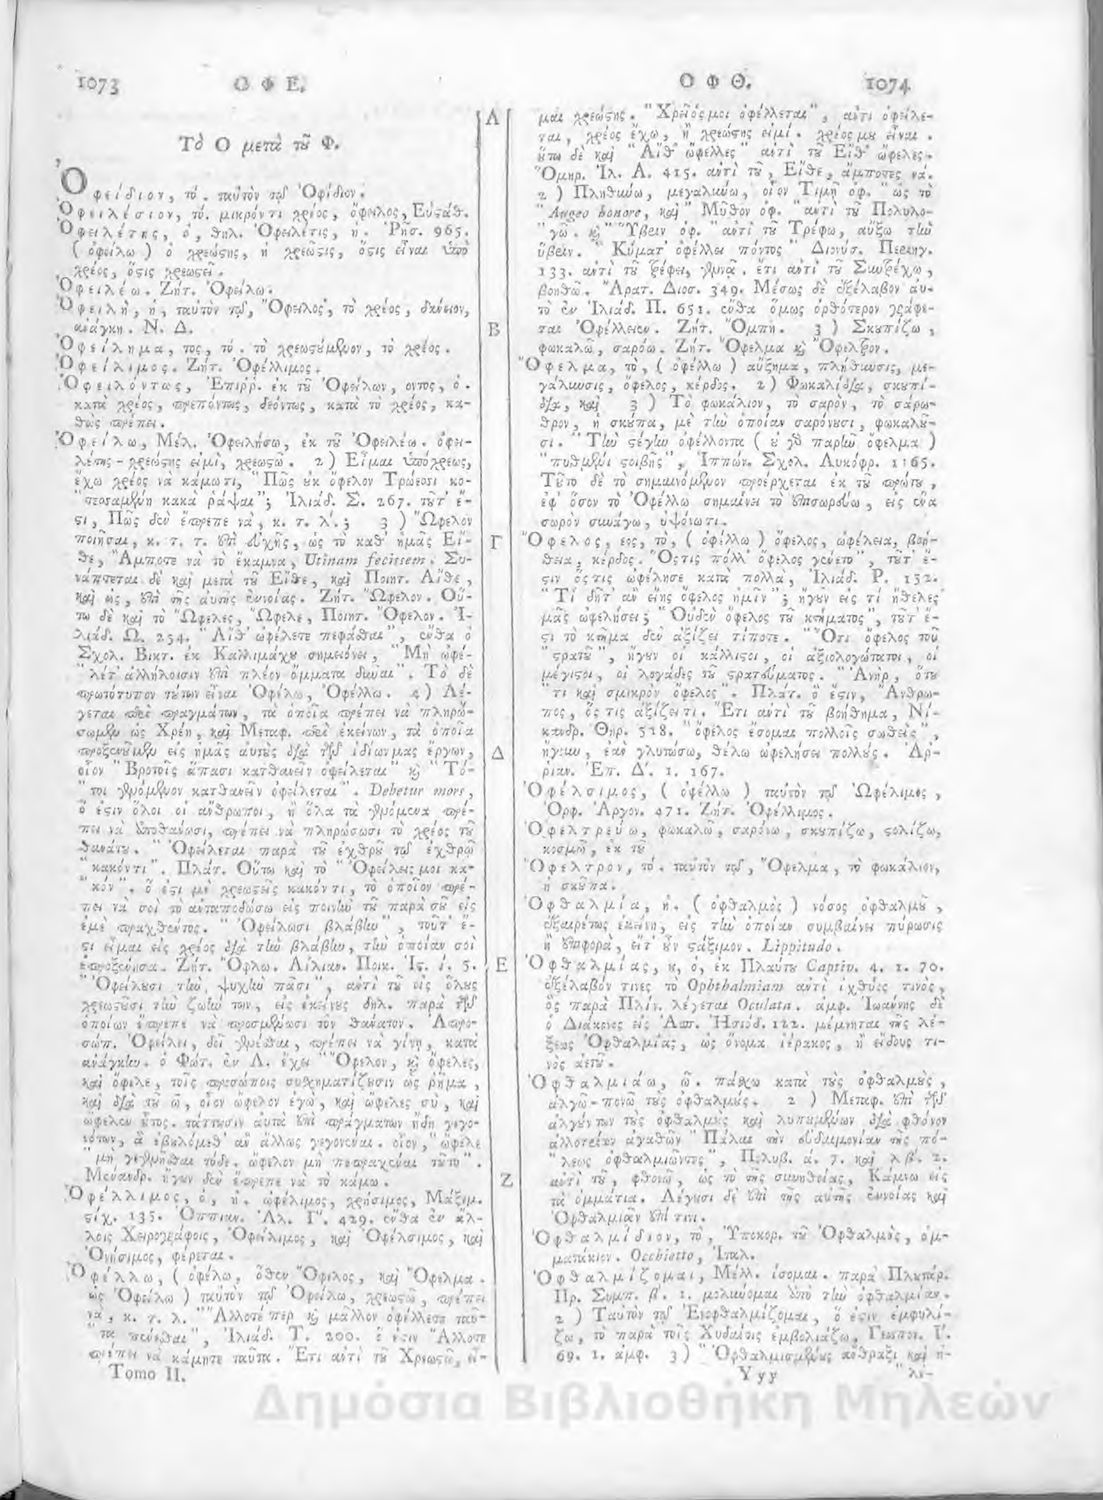 1073 Ο Φ Ε.
Τὸ Ο μετὰ τῦ Φ.
Ὀφείδιον, τό. ταὐτὸν τῷ Ὀφίδιον.
Ὀφειλέσιον, τό. μικρόν τι χρέος, ὄφειλος, Εὐστάθ.
Ὀφειλέτης, ὁ, θηλ. Ὀφειλέτις, ἡ. Ῥησ. 965.
( ὀφείλω ) ὁ χρεώστης, ἡ χρεώστις, ὅστις εἶναι ὑπὸ
χρέος, ὅστις χρεωστεῖ.
Ὀφειλέω. Ζήτ. Ὀφείλω.
Ὀφειλὴ, ἡ, ταὐτὸν τῷ, Ὄφειλος, τὸ χρέος, δάνειον,
ἀνάγκη. Ν. Δ.
Ὀφείλημα, τος, τό. τὸ χρεωστούμενον, τὸ χρέος.
Ὀφείλιμος. Ζήτ. Ὀφέλλιμος.
Ὀφειλόντως, Ἐπιῤῥ. ἐκ τῦ Ὀφείλων, οντος, ὁ.
κατὰ χρέος, πρεπόντως, δεόντως, κατὰ τὸ χρέος, κα-
θὼς πρέπει.
Ὀφείλω, Μέλ. Ὀφειλήσω, ἐκ τῦ Ὀφειλέω. ὀφει-
λέτης - χρεώστης εἰμὶ, χρεωστῶ. 2) Εἶμαι ὑπόχρεως,
ἔχω χρέος νὰ κάμωτι, "Πῶς ὐκ ὄφελον Τρώεσσι κο-
"τεσσαμένη κακὰ ῥάψαι"; Ἰλιάδ. Σ. 367. τῦτ' ἔ-
στι, Πῶς δὲν ἔπρεπε νὰ, κ. τ. λ.; 3 ) "Ὤφελον
ποιῆσαι, κ. τ. τ. ἐπὶ εὐχῆς, ὡς τὸ καθ' ἡμᾶς Εἴ-
θε, Ἄμποτε νὰ τὸ ἔκαμνα, Utinam fecissem. Συ-
νάπτεται δὲ καὶ μετὰ τῦ Εἴθε, καὶ Ποιητ. Αἴθε,
καὶ ὡς, ἐπὶ τῆς αὐτῆς ἐννοίας. Ζήτ. Ὤφελον. Οὕ-
τω δὲ καὶ τὸ Ὤφελες, Ὤφελε, Ποιητ. Ὄφελον. Ἰ-
λιάδ. Ω. 254. "Αἴθ' ὠφέλετε πεφάσθαι", ἔνθα ὁ
Σχολ. Βικτ. ἐκ Καλλιμάχυ σημειόνει, "Μὴ ὠφέ-
"λετ' ἀλλήλοισιν ἐπὶ πλέον ὄμματα δῦναι". Τὸ δὲ
πρωτότυπον τύτων εἶναι Ὀφέλω, Ὀφέλλω. 4 ) Λέ-
γεται περὶ πραγμάτων, τὰ ὁποῖα πρέπει νὰ πληρώ-
σωμεν ὡς Χρέη, καὶ Μεταφ. περὶ ἐκείνων, τὰ ὁποῖα
προξενῦμεν εἰς ἡμᾶς αὐτὺς διὰ τῶν ἰδίων μας ἔργων,
οἷον "Βροτοῖς ἅπασι κατθανεῖν ὀφείλεται" καὶ "Τό-
"τοι γενόμενον κατθανεῖν ὀφείλεται". Debetur mors,
ὅ ἐστιν ὅλοι οἱ ἄνθρωποι, ἢ ὅλα τὰ γενόμενα πρέ-
πει νὰ ἀποθάνωσι, πρέπει νὰ πληρώσωσι τὸ χρέος τῦ
θανάτυ. "Ὀφείλεται παρὰ τῦ ἐχθρῦ τῷ ἐχθρῷ
"κακόν τι". Πλάτ. Οὕτω καὶ τὸ "Ὀφείλεις μοι κα-
"κόν". ὅ ἐστι μὲ χρεωστεῖς κακόν τι, τὸ ὁποῖον πρέ-
πει νὰ σοὶ τὸ ἀνταποδώσω εἰς ποινὴν τῦ παρὰ σῦ εἰς
ἐμὲ πραχθέντος. "Ὀφείλωσι βλάβην", τοῦτ' ἔ-
στι εἶμαι εἰς χρέος διὰ τὴν βλάβην, τὴν ὁποίαν σοὶ
ἐπροξένησα. Ζήτ. Ὄφλω. Αἰλιαν. Ποικ. Ἱστ. ί. 5.
"Ὀφείλυσι τὴν ψυχὴν πᾶσι", ἀντὶ τῦ εἰς ὅλυς
χρεωστῦσι τὴν ζωήν των, εἰς ἐκείνυς δηλ. παρὰ τῶν
ὁποίων ἔπρεπε νὰ προσμένωσι τὸν θάνατον. Ἀπρο-
σώπ. Ὀφείλει, δεῖ γενέσθαι, πρέπει νὰ γίνῃ, κατὰ
ἀνάγκην. ὁ Φώτ. ἐν Λ. ἔχει "Ὄφελον, καὶ ὄφελες,
καὶ ὄφελε, τοῖς προσώποις συσχηματίζυσιν ὡς ῥῆμα,
καὶ διὰ τῦ ω, οἷον ὤφελον ἐγὼ, καὶ ὤφελες σὺ, καὶ
ὤφελεν ὗτος. τάττυσιν αὐτὰ ἐπὶ πραγμάτων ἤδη γεγο-
νότων, ἃ ἐβυλόμεθ' ἂν ἄλλως γεγονέναι. οἷον, "ὤφελε
"μὴ γεγενῆσθαι τόδε. ὤφελον μὴ πεπραχέναι τῦτο".
Μενάνδρ. ἤγυν δὲν ἔπρεπε νὰ τὸ κάμω.
Ὀφέλλιμος, ὁ, ἡ. ὠφέλιμος, χρήσιμος, Μάξιμ.
στίχ. 135. Ὀππιαν. Ἁλ. Γ. 429. ἔνθα ἐν ἄλ-
λοις Χειρογράφοις, Ὀφείλιμος, καὶ Ὀφέλσιμος, καὶ
Ὀνήσιμος, φέρεται.
Ὀφέλλω, ( ὀφέλω, ὅθεν Ὄφιλος, καὶ Ὄφελμα.
ὡς Ὀφείλω ) ταὐτὸν τῷ Ὀφείλω, χρεωστῶ, πρέπει
νὰ, κ. τ. λ. "Ἄλλοτέ περ καὶ μᾶλλον ὀφέλλετε ταῦ-
"τα πένεσθαι", Ἰλιάδ. Τ. 200. ὅ ἐστιν Ἄλλοτε
πρέπει νὰ κάμητε ταῦτα. Ἔτι ἀντὶ τῦ Χρεωστῶ, εἶ-
Tomo II.
Α
Β
Γ
Δ
Ε
Ζ
Ο Φ Θ. 1074
μαι χρεώστης. "Χρεῖός μοι ὀφέλλεται", ἀντὶ ὀφείλε-
ται, χρέος ἔχω, ἢ χρεώστης εἰμί. χρέος μυ εἶναι.
ὕτω δὲ καὶ "Αἴθ' ὤφελλες" ἀντὶ τῦ Εἴθ' ὤφελες.
Ὅμηρ. Ἰλ. Α. 415. ἀντὶ τῦ, Εἴθε, ἄμποτες νά.
2 ) Πληθαίνω, μεγαλαίνω, οἷον Τιμὴν ὀφ. "ὡς τὸ
"Augeo honore, καὶ "Μῦθον ὀφ. "ἀντὶ τῦ Πολυλο-
"γῶ. καὶ "Ὕβριν ὀφ. "ἀντὶ τῦ Τρέφω, αὔξω τὴν
ὕβριν. "Κύματ' ὀφέλλει πόντος" Διονύσ. Περιηγ.
133. ἀντὶ τῦ τρέφει, γεννᾷ. ἔτι ἀντὶ τῦ Συντρέχω,
βοηθῶ. Ἄρατ. Διοσ. 349. Μέσως δὲ ἐξέλαβον αὐ-
τὸ ἐν Ἰλιάδ. Π. 651. ἔνθα ὅμως ὀρθότερον γράφε-
ται Ὀφέλλειεν. Ζήτ. Ὄμπη. 3 ) Σκυπίζω,
φωκαλῶ, σαρόω. Ζήτ. Ὄφελμα καὶ Ὄφελτρον.
Ὄφελμα, τὸ, ( ὀφέλλω ) αὔξημα, πλήθωσις, με-
γάλωσις, ὄφελος, κέρδος. 2 ) Φωκαλίδια, σκυπί-
δια, καὶ 3 ) Τὸ φωκάλιον, τὸ σαρὸν, τὸ σάρω-
θρον, ἢ σκύπα, μὲ τὴν ὁποίαν σαρόνυσι, φωκαλῦ-
σι. "Τὴν στέγην ὀφέλλοντα ( ὐ γὰρ παρῆν ὄφελμα )
"πυθμένι στοιβῆς", Ἱππών. Σχολ. Λυκόφρ. 1165.
Τῦτο δὲ τὸ σημαινόμενον προέρχεται ἐκ τῦ πρώτυ,
ἐφ' ὅσον τὸ Ὀφέλλω σημαίνει τὸ ἐπισωρεύω, εἰς ἕνα
σωρὸν συνάγω, ὑψόνωτι.
Ὄφελος, εος, τὸ, ( ὀφέλλω ) ὄφελος, ὠφέλεια, βοή-
θεια, κέρδος. "Ὅστις πόλλ' ὄφελος γένετο", τῦτ' ἔ-
στιν ὅστις ὠφέλησε κατὰ πολλὰ, Ἰλιάδ. Ρ. 152.
"Τί δῆτ' ἂν εἴης ὄφελος ἡμῖν"; ἤγυν εἰς τί ἤθελες
μᾶς ὠφελήσει; "Οὐδὲν ὄφελος τῦ κτήματος", τῦτ' ἔ-
στι τὸ κτῆμα δὲν ἀξίζει τίποτε. "Ὅτι ὄφελος τοῦ
"στρατῦ", ἤγυν οἱ κάλλιστοι, οἱ ἀξιολογώτατοι, οἱ
μέγιστοι, οἱ λογάδες τῦ στρατεύματος. "Ἀνὴρ, ὅτυ
"τι καὶ σμικρὸν ὄφελος". Πλάτ. ὅ ἐστιν, Ἄνθρω-
πος, ὅστις ἀξίζει τι. Ἔτι ἀντὶ τῦ βοήθημα, Νί-
κανδρ. Θηρ. 518. "ὄφελος ἔσομαι πολλοῖς σωθεὶς",
ἤγυν, ἐὰν γλυτώσω, θέλω ὠφελήσει πολλύς. Ἀρ-
ριαν. Ἐπ. Δ. 1. 167.
Ὀφέλσιμος, ( ὀφέλλω ) ταὐτὸν τῷ Ὠφέλιμος,
Ὀρφ. Ἀργον. 471. Ζήτ. Ὀφέλλιμος.
Ὀφελτρεύω, φωκαλῶ, σαρόνω, σκυπίζω, στολίζω,
κοσμῶ, ἐκ τῦ
Ὄφελτρον, τό. ταὐτὸν τῷ, Ὄφελμα, τὸ φωκάλιον,
ἡ σκῦπα.
Ὀφθαλμία, ἡ. ( ὀφθαλμὸς ) νόσος ὀφθαλμῦ,
ἐξαιρέτως ἐκείνη, εἰς τὴν ὁποίαν συμβαίνει πύρωσις
ἢ ἐπιφορὰ, εἴτ' ὖν στάξιμον. Lippitudo.
Ὀφθαλμίας, υ, ὁ, ἐκ Πλαύτυ Captiv. 4. 1. 70.
ἐξέλαβόν τινες τὸ Ophthalmiam ἀντὶ ἰχθύος τινὸς,
ὃς παρὰ Πλίν. λέγεται Oculata. ἀμφ. Ἰωάννης δὲ
ὁ Διάκονος εἰς Ἀσπ. Ἡσιόδ. 122. μέμνηται τῆς λέ-
ξεως Ὀφθαλμίας, ὡς ὄνομα ἱέρακος, ἢ εἴδους τι-
νὸς ἀετῦ.
Ὀφθαλμιάω, ῶ. πάσχω κατὰ τὺς ὀφθαλμὺς,
ἀλγῶ-πονῶ τὺς ὀφθαλμύς. 2 ) Μεταφ. ἐπὶ τῶν
ἀλγύντων τὺς ὀφθαλμὺς καὶ λυπυμένων διὰ φθόνον
ἀλλοτρίων ἀγαθῶν "Πάλαι τὴν εὐδαιμονίαν τῆς πό-
"λεως ὀφθαλμιῶντες", Πολυβ. α. 7. καὶ λβ. 2.
ἀντὶ τῦ, φθονῶ, ὡς τὸ τῆς συνηθείας, Κάμνω εἰς
τὰ ὀμμάτια. Λέγυσι δὲ ἐπὶ τῆς αὐτῆς ἐννοίας καὶ
Ὀφθαλμιᾶν ἐπί τινι.
Ὀφθαλμίδιον, τὸ, Ὑποκορ. τῦ Ὀφθαλμὸς, ὀμ-
ματάκιον. Occhietto, Ἰταλ.
Ὀφθαλμίζομαι, Μέλλ. ίσομαι. παρὰ Πλυτάρ.
Πρ. Συμπ. β. 1. μολύνομαι ὑπὸ τὴν ὀφθαλμίαν.
2 ) Ταὐτὸν τῷ Ἐνοφθαλμίζομαι, ὅ ἐστιν ἐμφυλί-
ζω, τὸ παρὰ τοῖς Χυδαίοις ἐμβολιάζω, Γεωπον. Γ.
69. 1. ἀμφ. 3 ) "Ὀφθαλμισμένυς ἄνθραξι καὶ ἡ-
Yyy "λι-
Δημόσια Βιβλιοθήκη Μηλεών